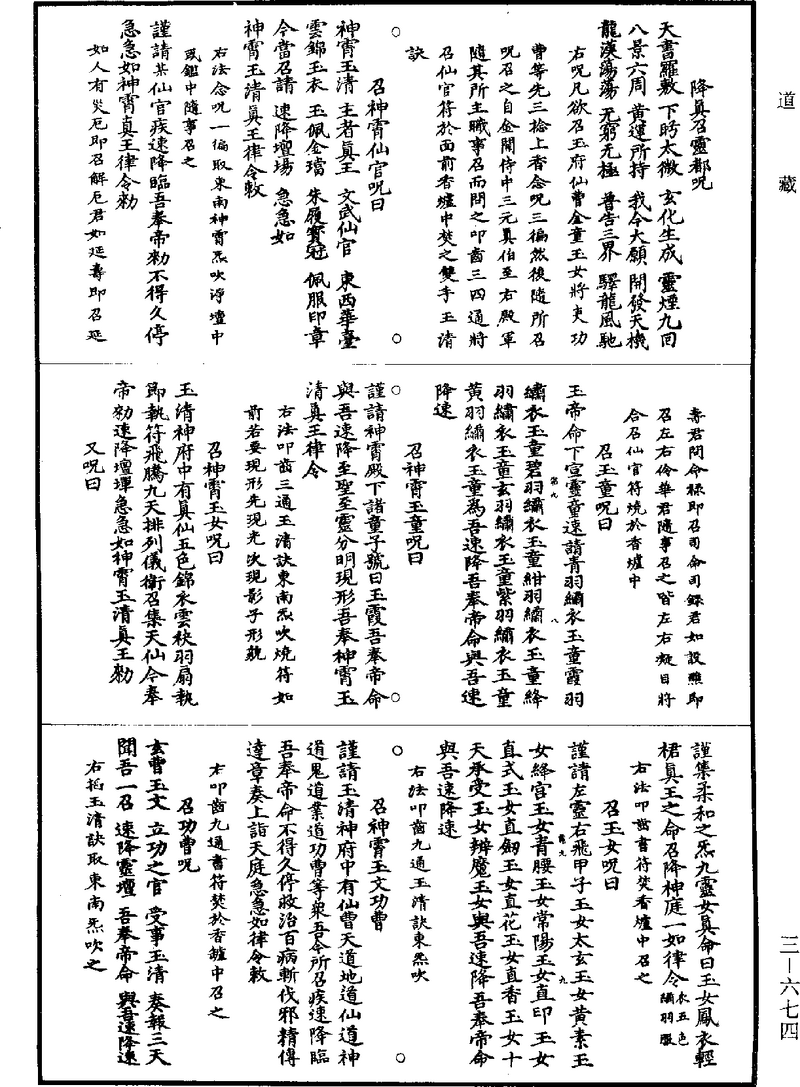 道藏
降真召靈都呪
天書羅敷 下眄太微 玄化生成 靈煙九回
八景六周 黃運所持 我今大願 開發天機
龍漢蕩蕩 无窮无極 普告三界 驛龍風馳
右呪凡欲召玉府仙曹金童玉女將吏功
曹等先三捻上香念呪三徧然後隨所召
呪召之自金闕侍中三元真伯至右殿軍
隨其所主職事召而問之叩齒三四通將
召仙官符於面前香爐中焚之雙手玉清
訣
召神霄仙官呪曰
神霄玉清 主者真王 文武仙官 東西華臺
雲錦玉衣 玉佩金璫 朱履寶冠 佩服印章
今當召請 速降壇場 急急如
神霄玉清真王律令敕
右法念呪一徧取東南神霄炁吹淨壇中
或鑑中隨事召之
謹請某仙官疾速降臨吾奉帝勑不得久停
急急如神霄真王律令勑
如人有災厄即召解厄君如延壽即召延
壽君問命祿即召司命司錄君如設醮即
召左右伶華君隨事召之皆左右凝目將
合召仙官符燒於香爐中
召玉童呪曰
玉帝命下宣靈童速請青羽繡衣玉童霞羽
繡衣玉童碧羽繡衣玉童紺羽繡衣玉童絳
羽繡衣玉童玄羽繡衣玉童紫羽繡衣玉童
黃羽繡衣玉童爲吾速降吾奉帝命與吾速
降速
召神霄玉童呪曰
謹請神霄殿下諸童子號曰玉霞吾奉帝命
與吾速降至聖至靈分明現形吾奉神霄玉
清真王律令
右法叩齒三通玉清訣東南炁吹燒符如
前若要現形先現光次現影子形貌
召神霄玉女呪曰
玉清神府中有真仙五色錦衣雲袂羽扇執
節執符飛騰九天排列儀衛召集天仙今奉
帝勑速降壇墠急急如神霄玉清真王勑
又呪曰
謹集柔和之炁九靈女真命曰玉女鳳衣輕
裙真王之命召降神庭一如律令衣五色繡羽服
右法叩齒書符焚香爐中召之
召玉女呪曰
謹請左靈右飛甲子玉女太玄玉女黃素玉
女絳宮玉女青腰玉女常陽玉女直印玉女
直式玉女直劒玉女直花玉女直香玉女十
天承受玉女辨魔玉女與吾速降吾奉帝命
與吾速降速
右法叩齒九通玉清訣東炁吹
召神霄玉文功曹
謹請玉清神府中有仙曹天道地道仙道神
道鬼道業道功曹等衆吾今所召疾速降臨
吾奉帝命不得久停救治百病斬伐邪精傳
達章奏上詣天庭急急如律令敕
右叩齒九通書符焚於香爐中召之
召功曹呪
玄曹玉文 立功之官 受事玉清 奏報三天
聞吾一召 速降靈壇 吾奉帝命 與吾速降速
右掐玉清訣取東南炁吹之
三—六七四